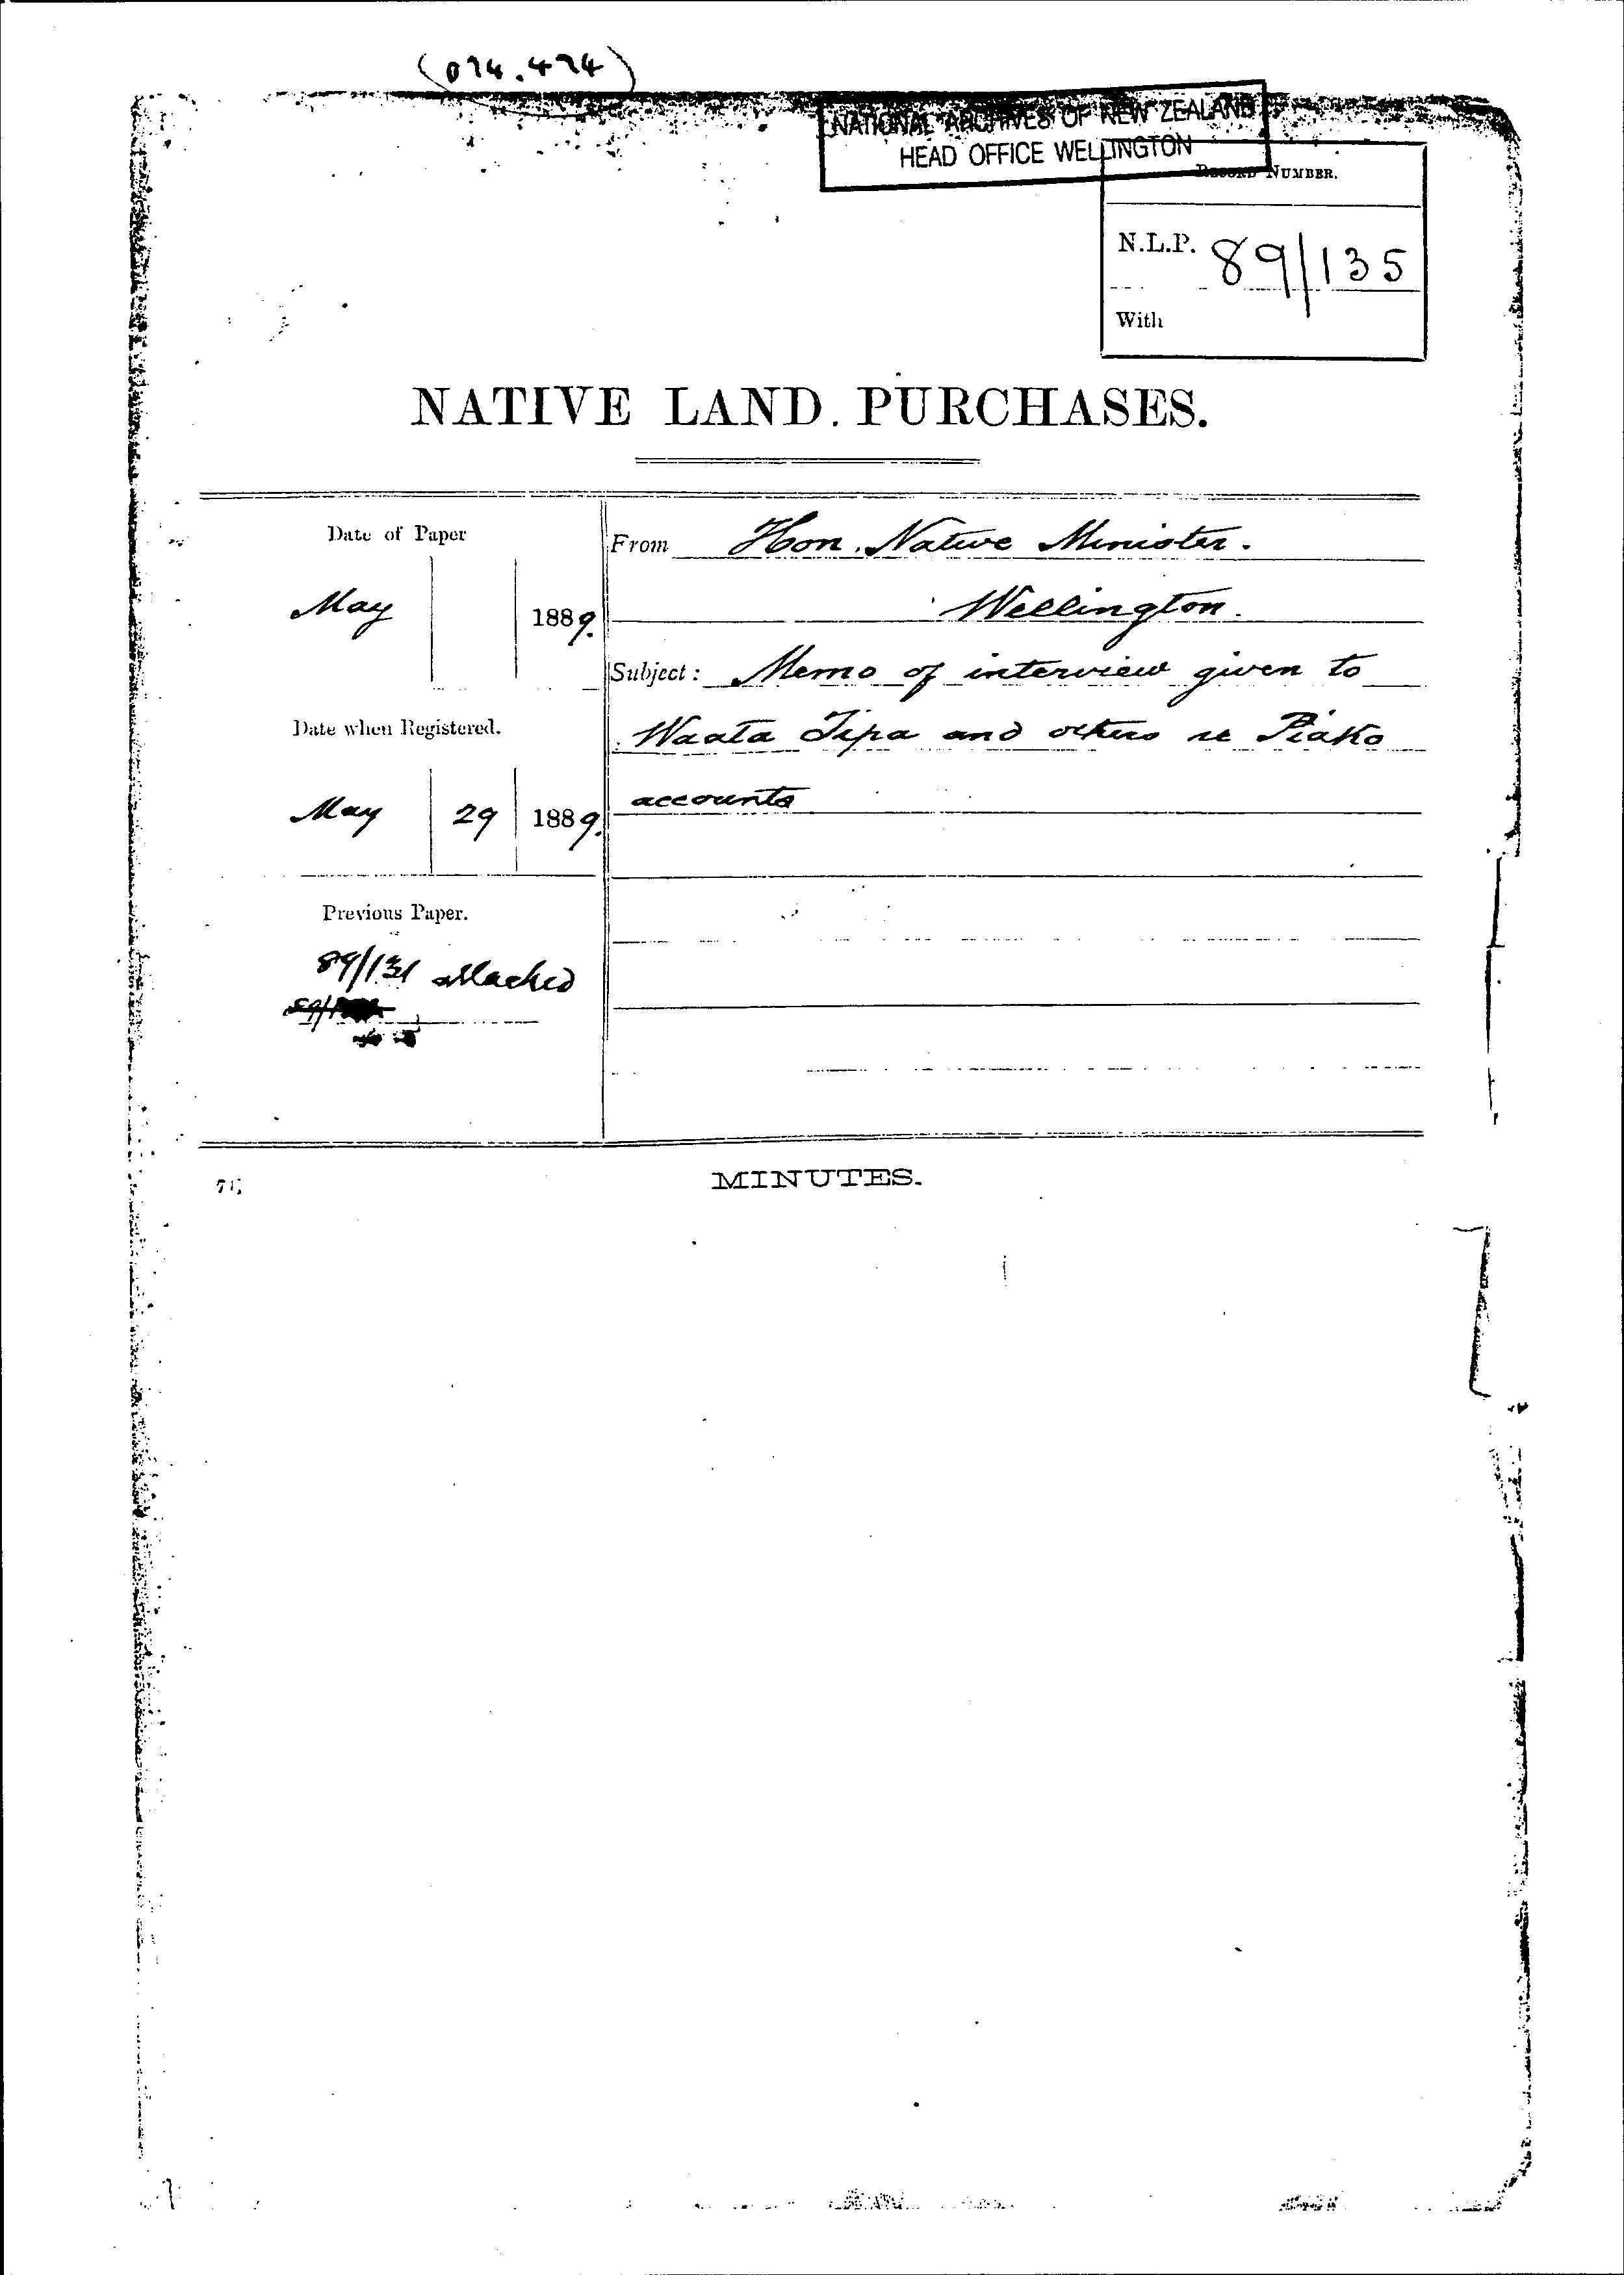 (074.474)
NATIONAL ARCHIVES OF NEW ZEALAND
HEAD OFFICE WELLINGTON
RECORD NUMBER.
N.L.P. 89/135
With
NATIVE LAND PURCHASES.
Date of Paper
May 1889.
From Hon. Native Minister.
Wellington.
Subject: Memo of interview given to
Waata Tipa and others re Piako
accounts
Date when Registered.
May 29 1889.
Previous Paper.
89/131 attached
MINUTES.